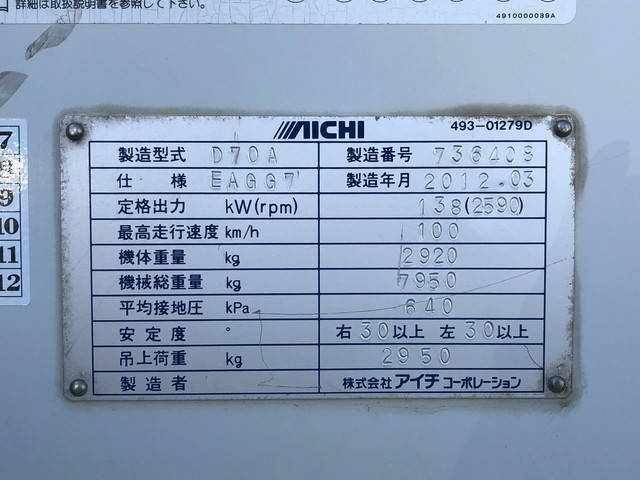 詳細は取扱説明書を参照して下さい。
4910000039A
AICHI 493-01279D
製造型式 D70A 製造番号 736408
仕様 EAGG7 製造年月 2012.03
定格出力 kW(rpm) 138(2590)
最高走行速度 km/h 100
機体重量 kg 2920
機械総重量 kg 7950
平均接地圧 kPa 640
安定度 ° 右30以上 左30以上
吊上荷重 kg 2950
製造者 株式会社アイチコーポレーション
7
8
9
10
11
12